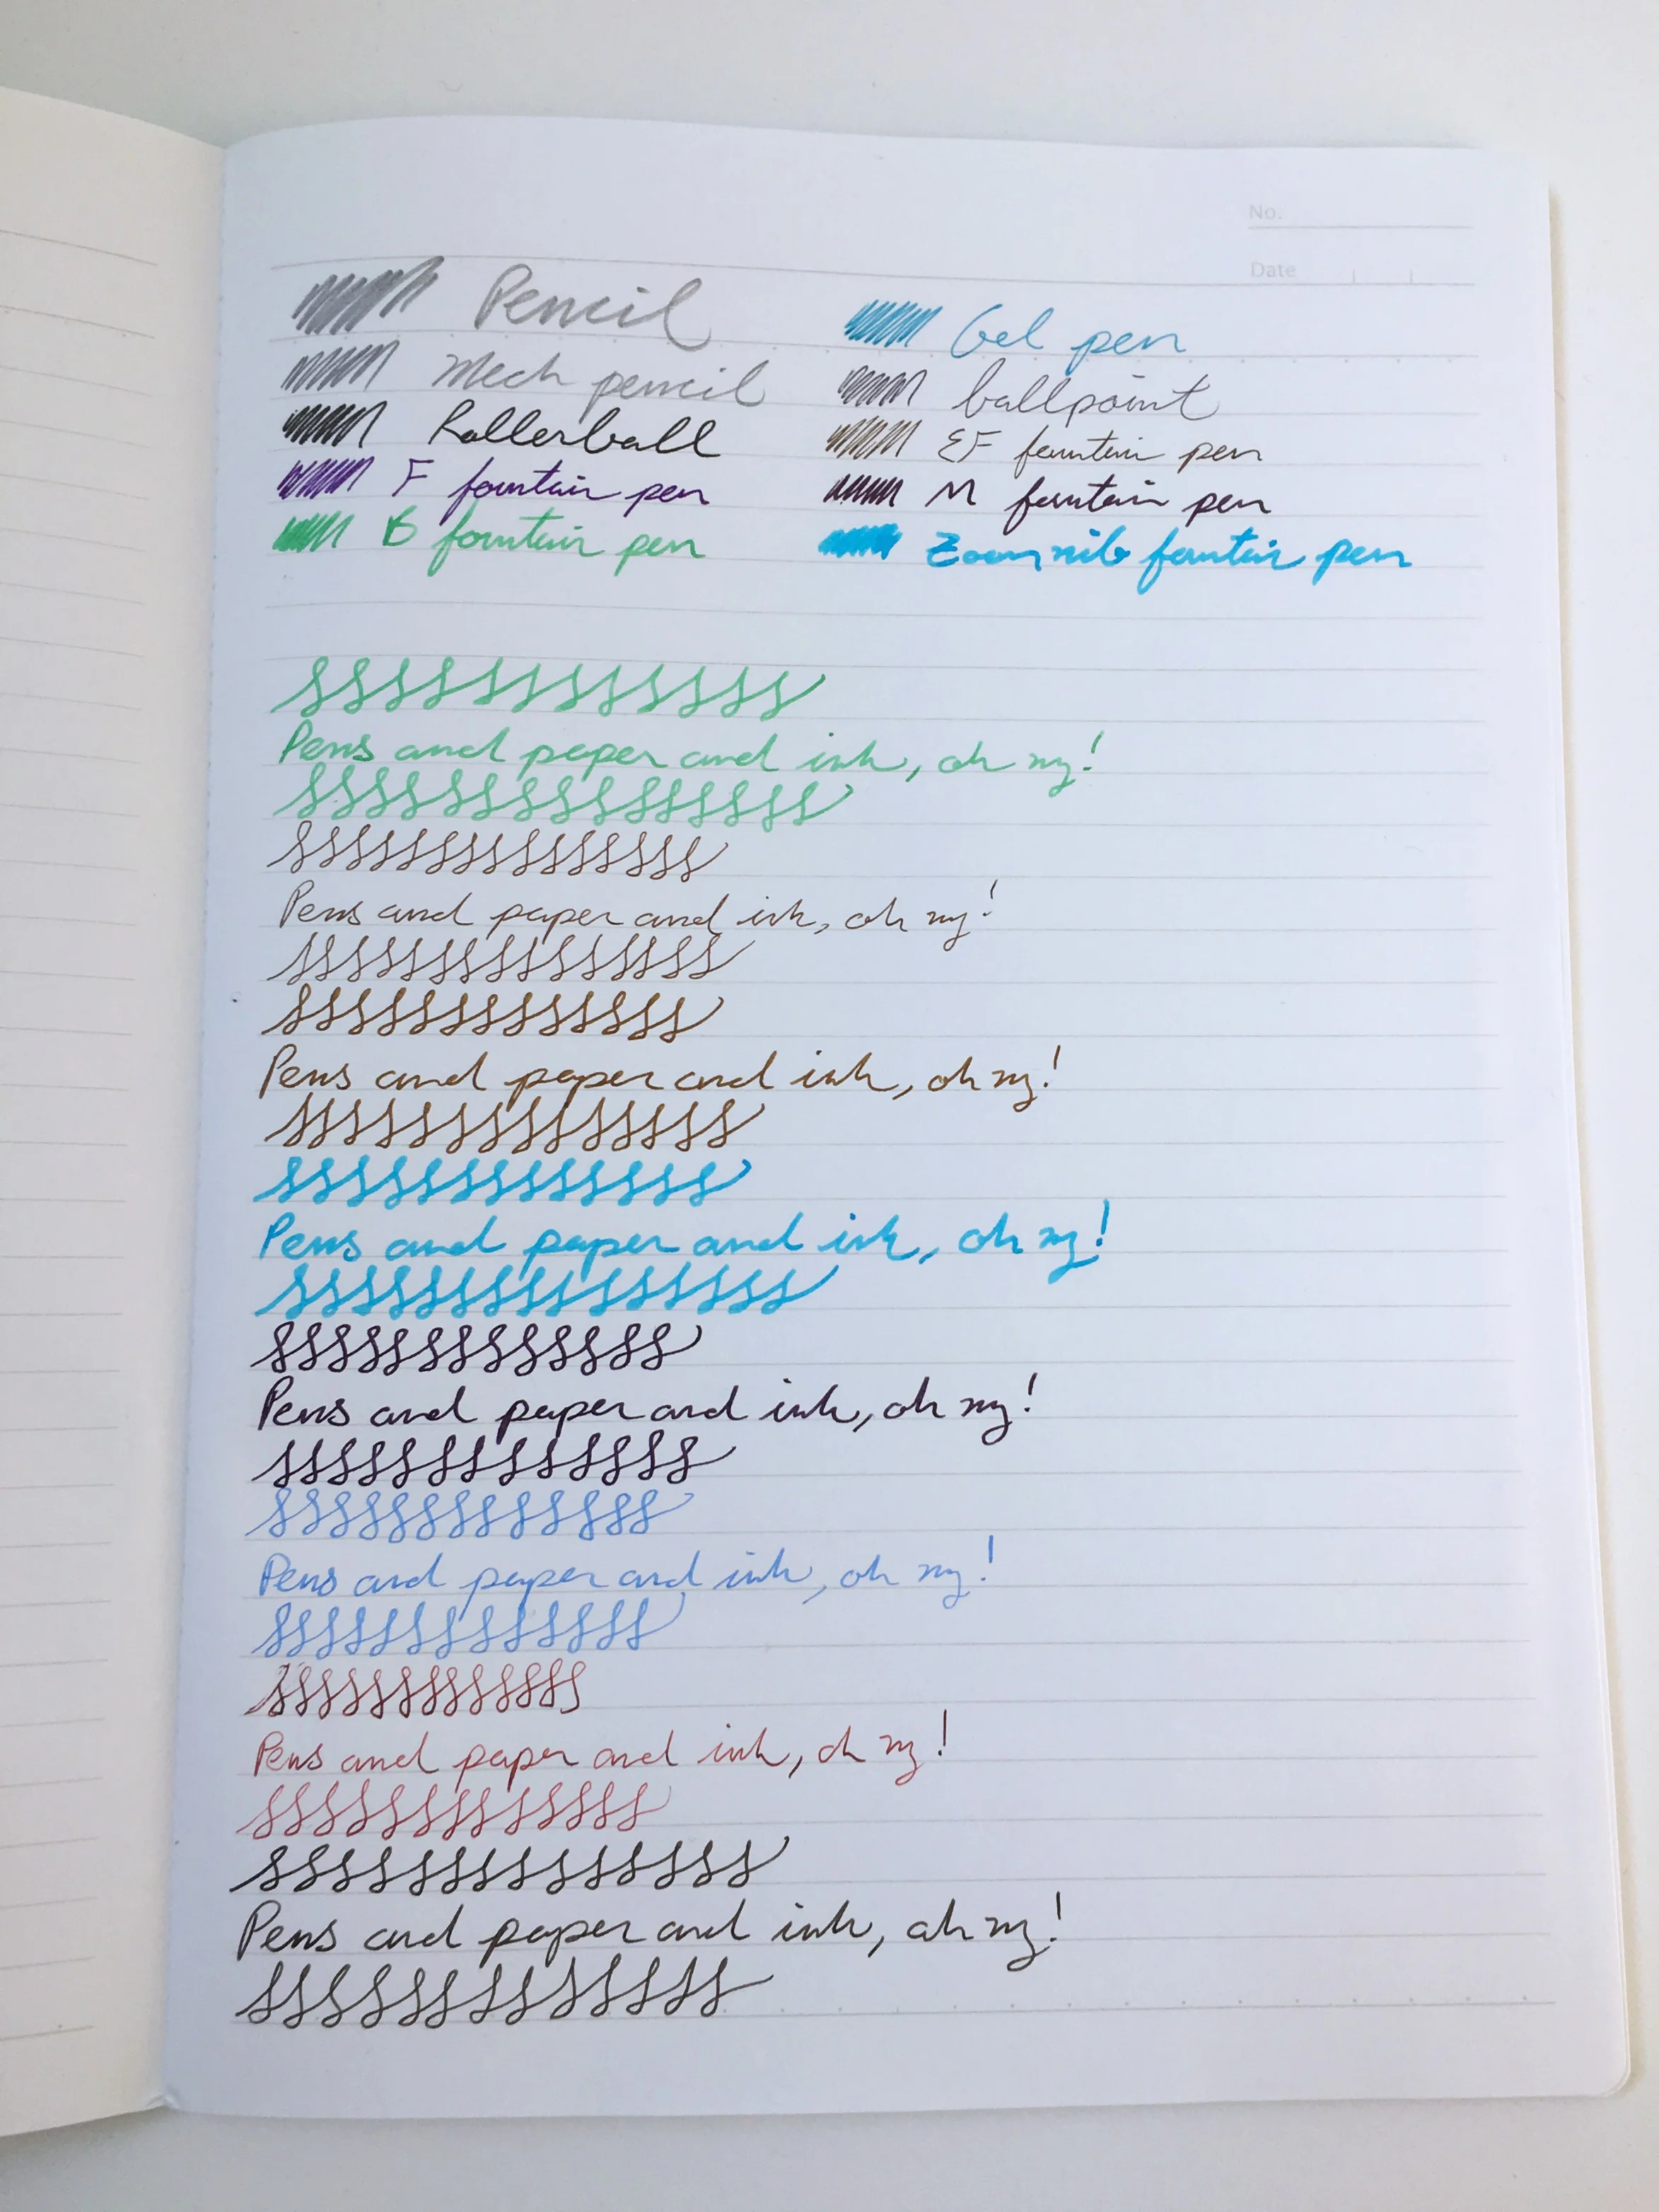 No.
Date
Pencil
Gel pen
Mech pencil
ballpoint
Rollerball
EF fountain pen
F fountain pen
M fountain pen
B fountain pen
Zoom nib fountain pen
Pens and paper and ink, oh my!
Pens and paper and ink, oh my!
Pens and paper and ink, oh my!
Pens and paper and ink, oh my!
Pens and paper and ink, oh my!
Pens and paper and ink, oh my!
Pens and paper and ink, oh my!
Pens and paper and ink, oh my!